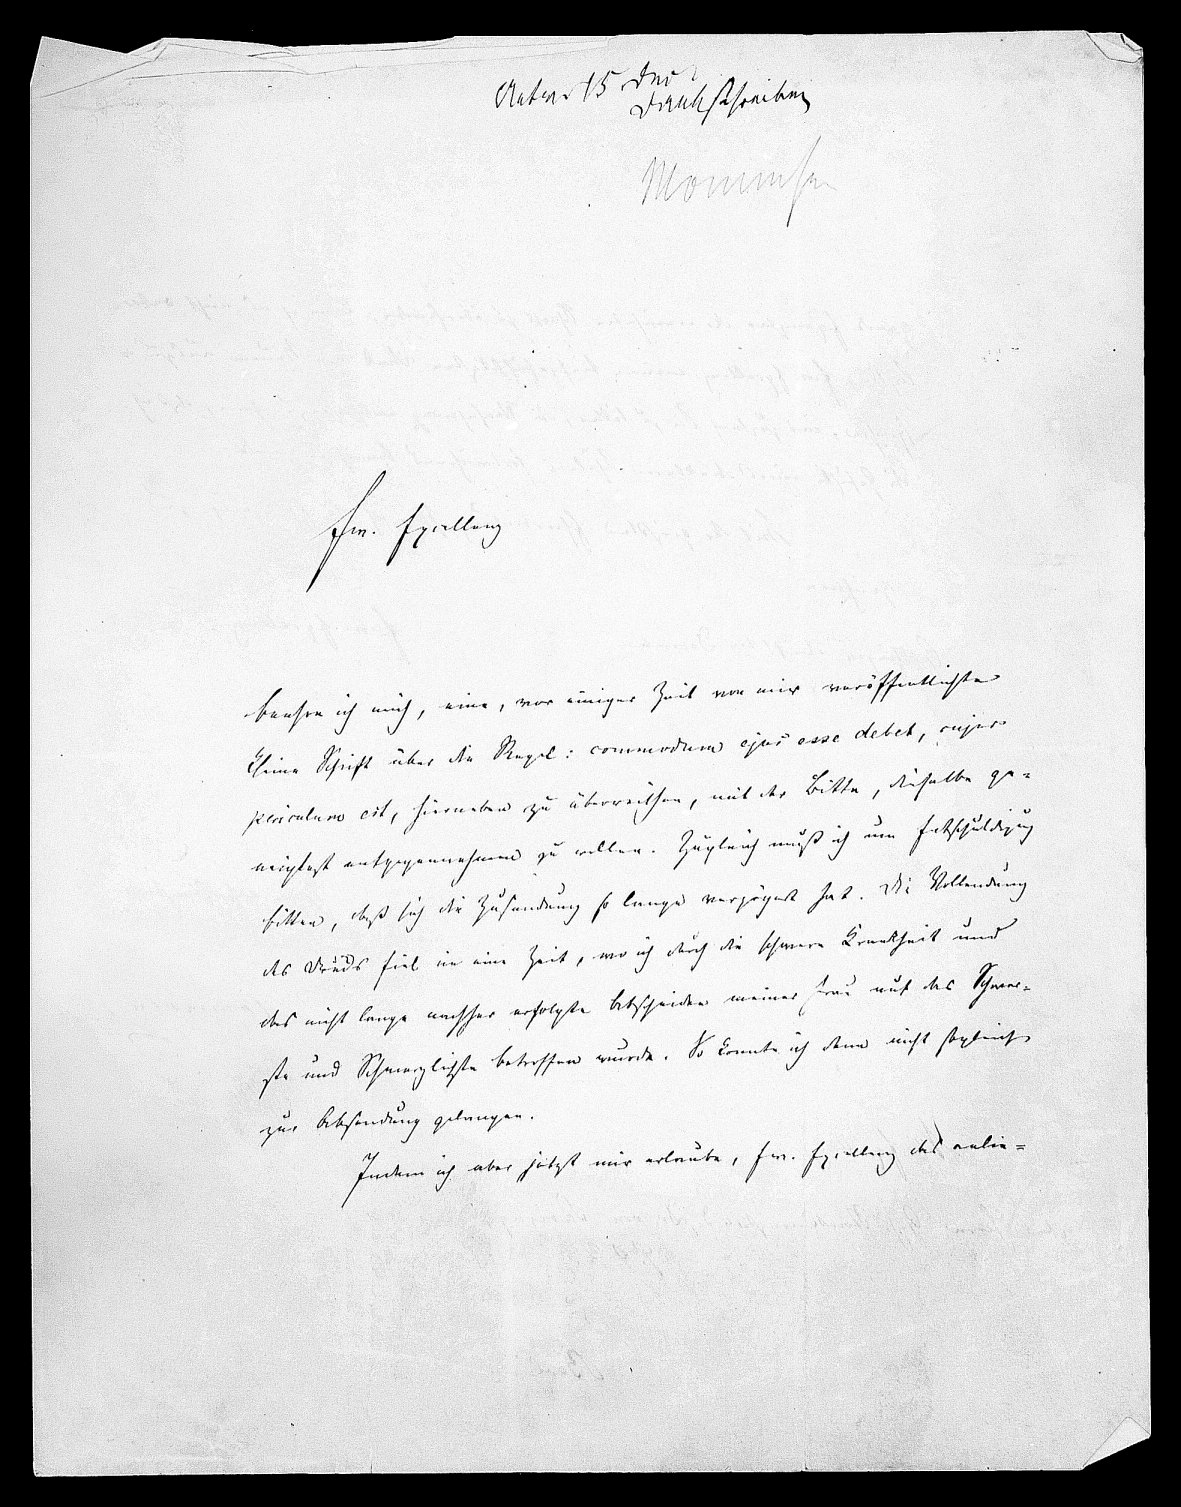 Antw. 15 Dec
Dankschreiben
Mommsen
Ew. Excellenz
beehre ich mich, eine, vor einiger Zeit von mir veröffentlichte
kleine Schrift über die Regel: commodum ejus esse debet, cujus
periculum est, hierneben zu überreichen, mit der Bitte, dieselbe ge-
neigtest entgegennehmen zu wollen. Zugleich muß ich um Entschuldigung
bitten, daß sich die Zusendung so lange verzögert hat. Die Vollendung
des Drucks fiel in eine Zeit, wo ich durch die schwere Krankheit und
das nicht lange nachher erfolgte Abscheiden meiner Frau auf das Schwer-
ste und Schmerzlichste betroffen wurde. So konnte ich denn nicht sogleich
zur Absendung gelangen.
Indem ich aber jetzt mir erlaube, Ew. Excellenz das anlie-